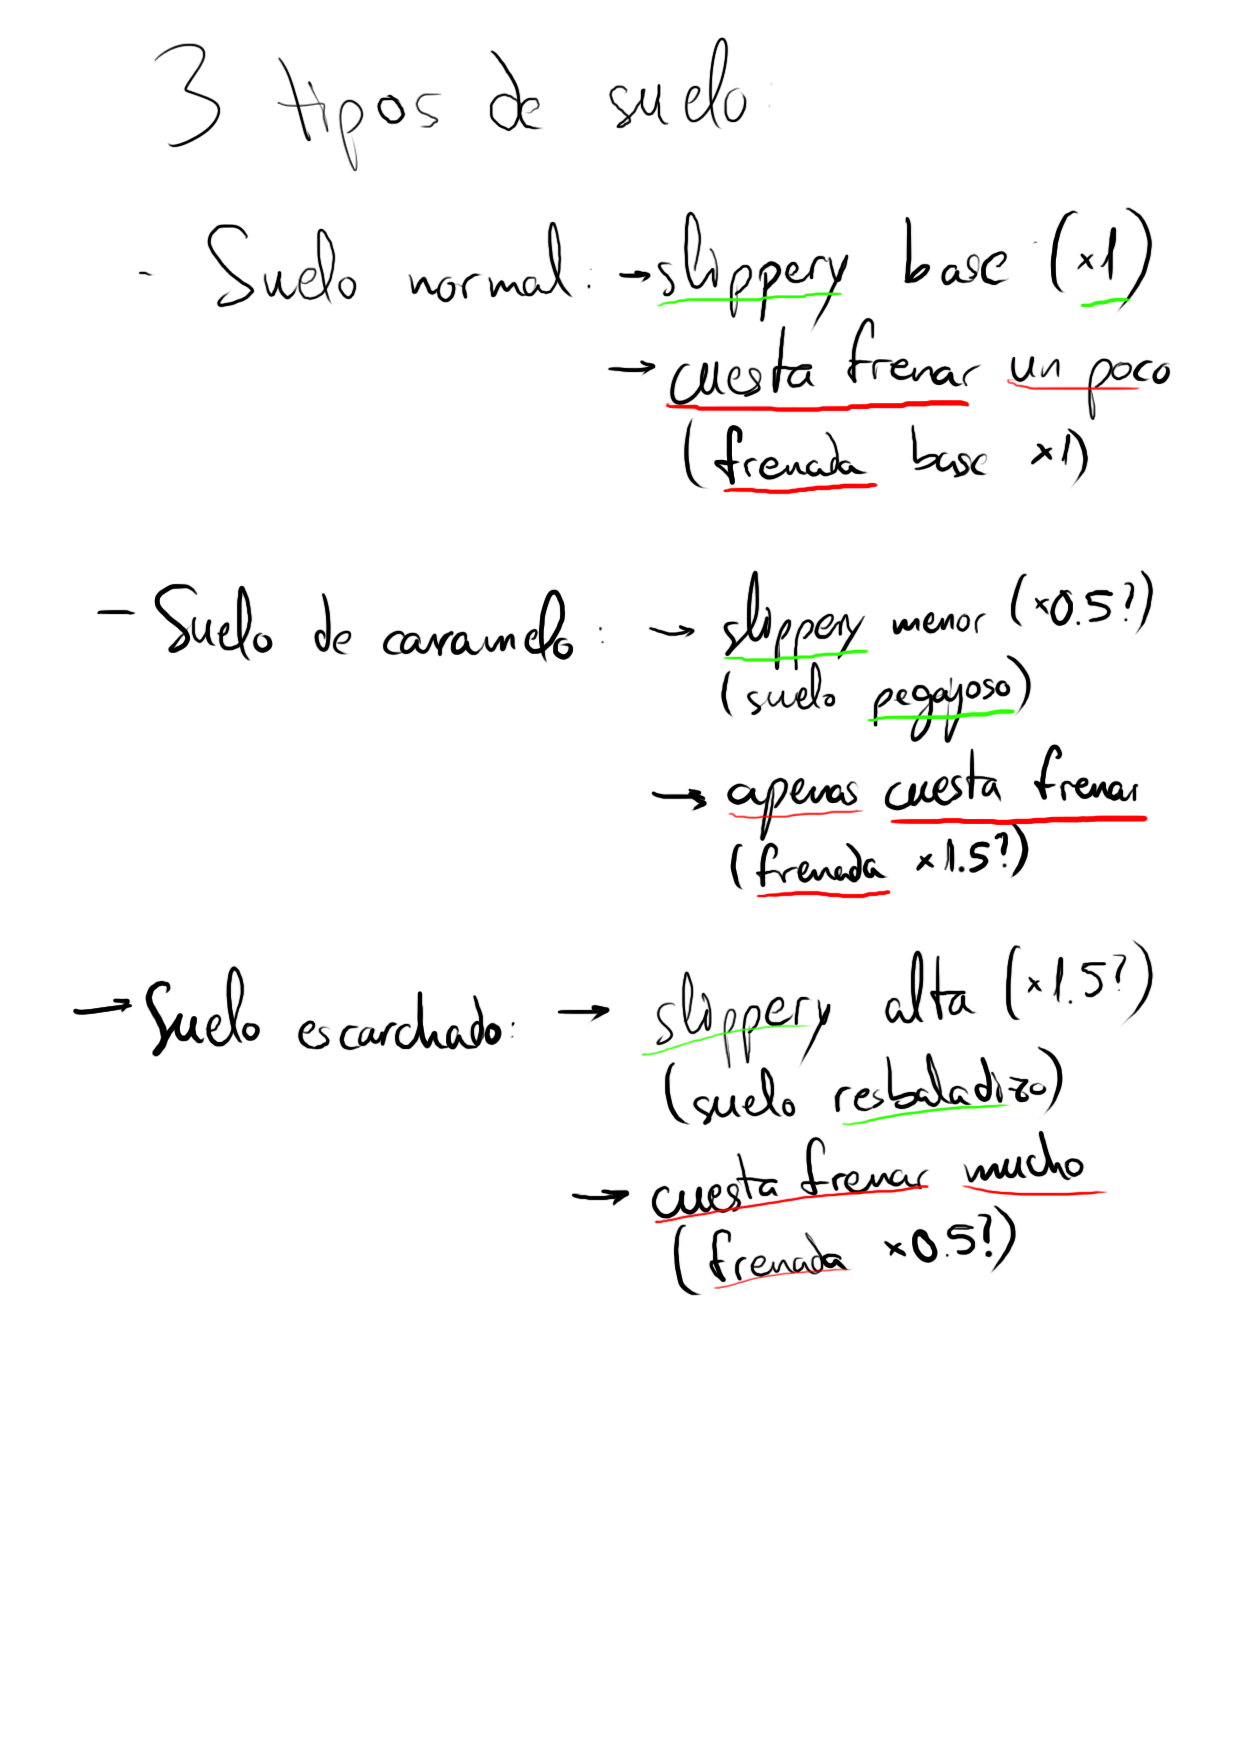 3 tipos de suelo:
- Suelo normal: → slippery base (×1)
→ cuesta frenar un poco
(frenada base ×1)
- Suelo de caramelo: → slippery menor (×0.5?)
(suelo pegajoso)
→ apenas cuesta frenar
(frenada ×1.5?)
→ Suelo escarchado: → slippery alta (×1.5?)
(suelo resbaladizo)
→ cuesta frenar mucho
(frenada ×0.5?)